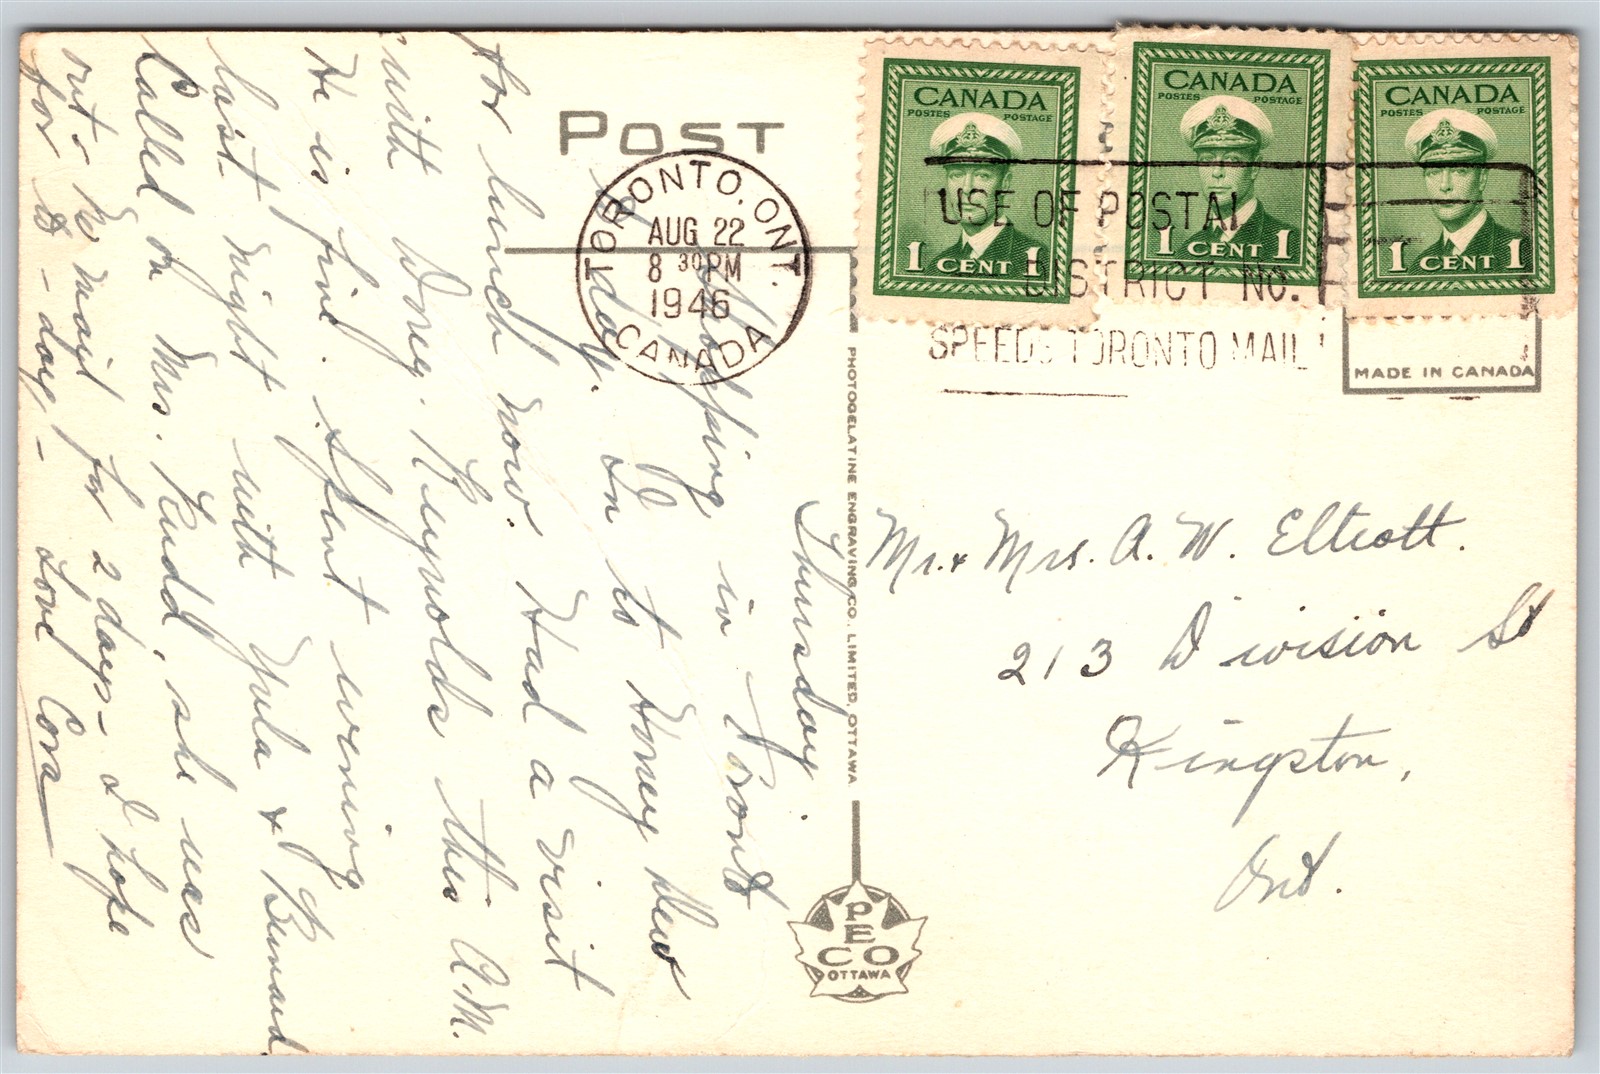 POST
TORONTO, ONT.
AUG 22
8 30 PM
1946
CANADA
CANADA
POSTES POSTAGE
1 CENT 1
CANADA
POSTES POSTAGE
1 CENT 1
CANADA
POSTES POSTAGE
1 CENT 1
USE OF POSTAL
DISTRICT NO.
SPEEDS TORONTO MAIL!
MADE IN CANADA
PHOTOGELATINE ENGRAVING CO. LIMITED, OTTAWA
PECO
OTTAWA
Thursday.
Shopping in Toronto
today. In to Honey Dew
for lunch now. Had a visit
with Doug. Reynolds this A.M.
He is fine. Spent evening
last night with Yula & Bernard
Called on Mrs. Rudd, she was
out - No maid for 2 days - I hope
for to-day - Love Cora
Mr. & Mrs. A. W. Elliott.
213 Division St
Kingston,
Ont.